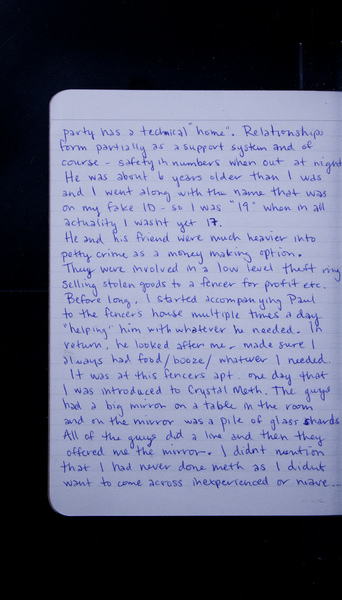 party has a technical "home". Relationships
form partially as a support system and of
course - safety in numbers when out at night
He was about 6 years older than I was
and I went along with the name that was
on my fake ID - so I was "19" when in all
actuality I wasnt yet 17.
He and his friend were much heavier into
petty crime as a money making option.
They were involved in a low level theft ring
selling stolen goods to a fencer for profit etc.
Before long, I started accompanying Paul
to the fencers house multiple times a day
"helping" him with whatever he needed. In
return, he looked after me - made sure I
always had food/booze/whatever I needed.
It was at this fencers apt. one day that
I was introduced to Crystal Meth. The guys
had a big mirror on a table in the room
and on the mirror was a pile of glass shards
All of the guys did a line and then they
offered me the mirror. I didnt mention
that I had never done meth as I didnt
want to come across inexperienced or naive...